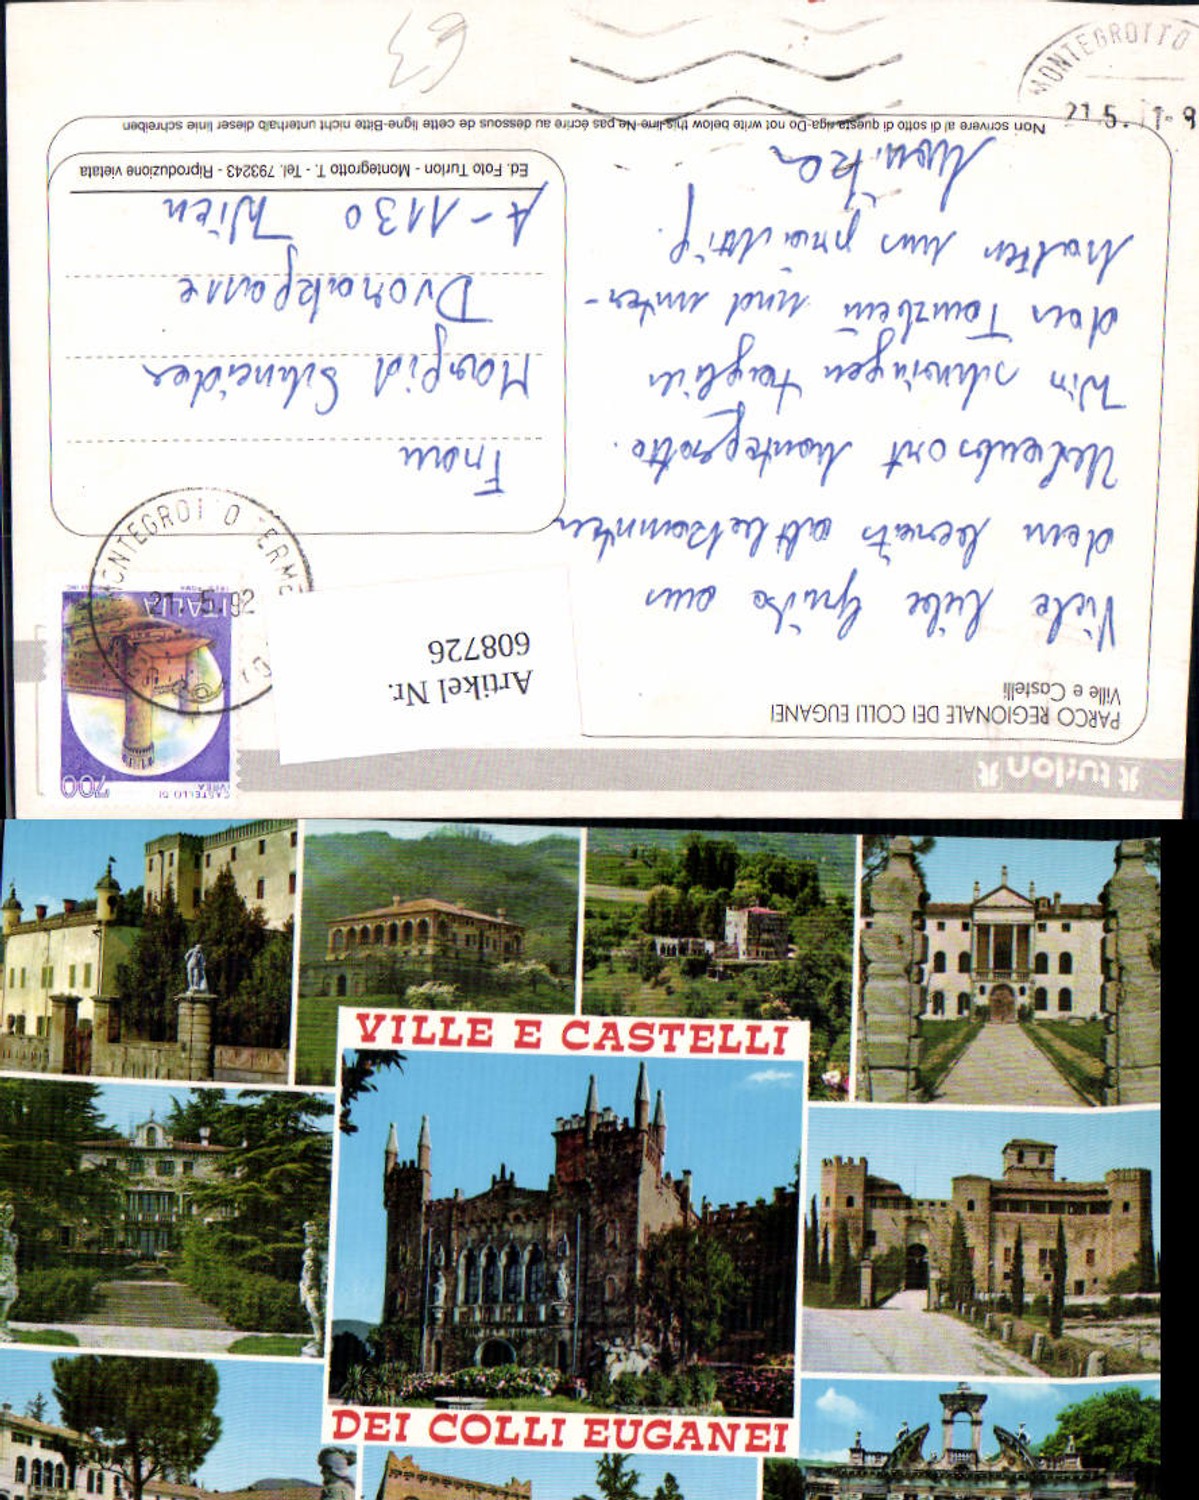 PARCO REGIONALE DEI COLLI EUGANEI
Ville e Castelli
Viele liebe Grüße aus
dem bereits altbekannten
Urlaubsort Montegrotto.
Wir schwingen täglich
das Tanzbein und unter-
halten uns prächtig.
Monika
Non scrivere al di sotto di questa riga-Do not write below this line-Ne pas écrire au dessous de cette ligne-Bitte nicht unterhalb dieser linie schreiben
turlon
CASTELLO DI
IVREA
700
ITALIA
MONTEGROTTO TERME
21.5.92
Artikel Nr.
608726
Frau
Margid Schneider
Dvorakgasse
A-1130 Wien
Ed. Foto Turlon - Montegrotto T. - Tel. 793243 - Riproduzione vietata
MONTEGROTTO
21.5.
63
VILLE E CASTELLI
DEI COLLI EUGANEI